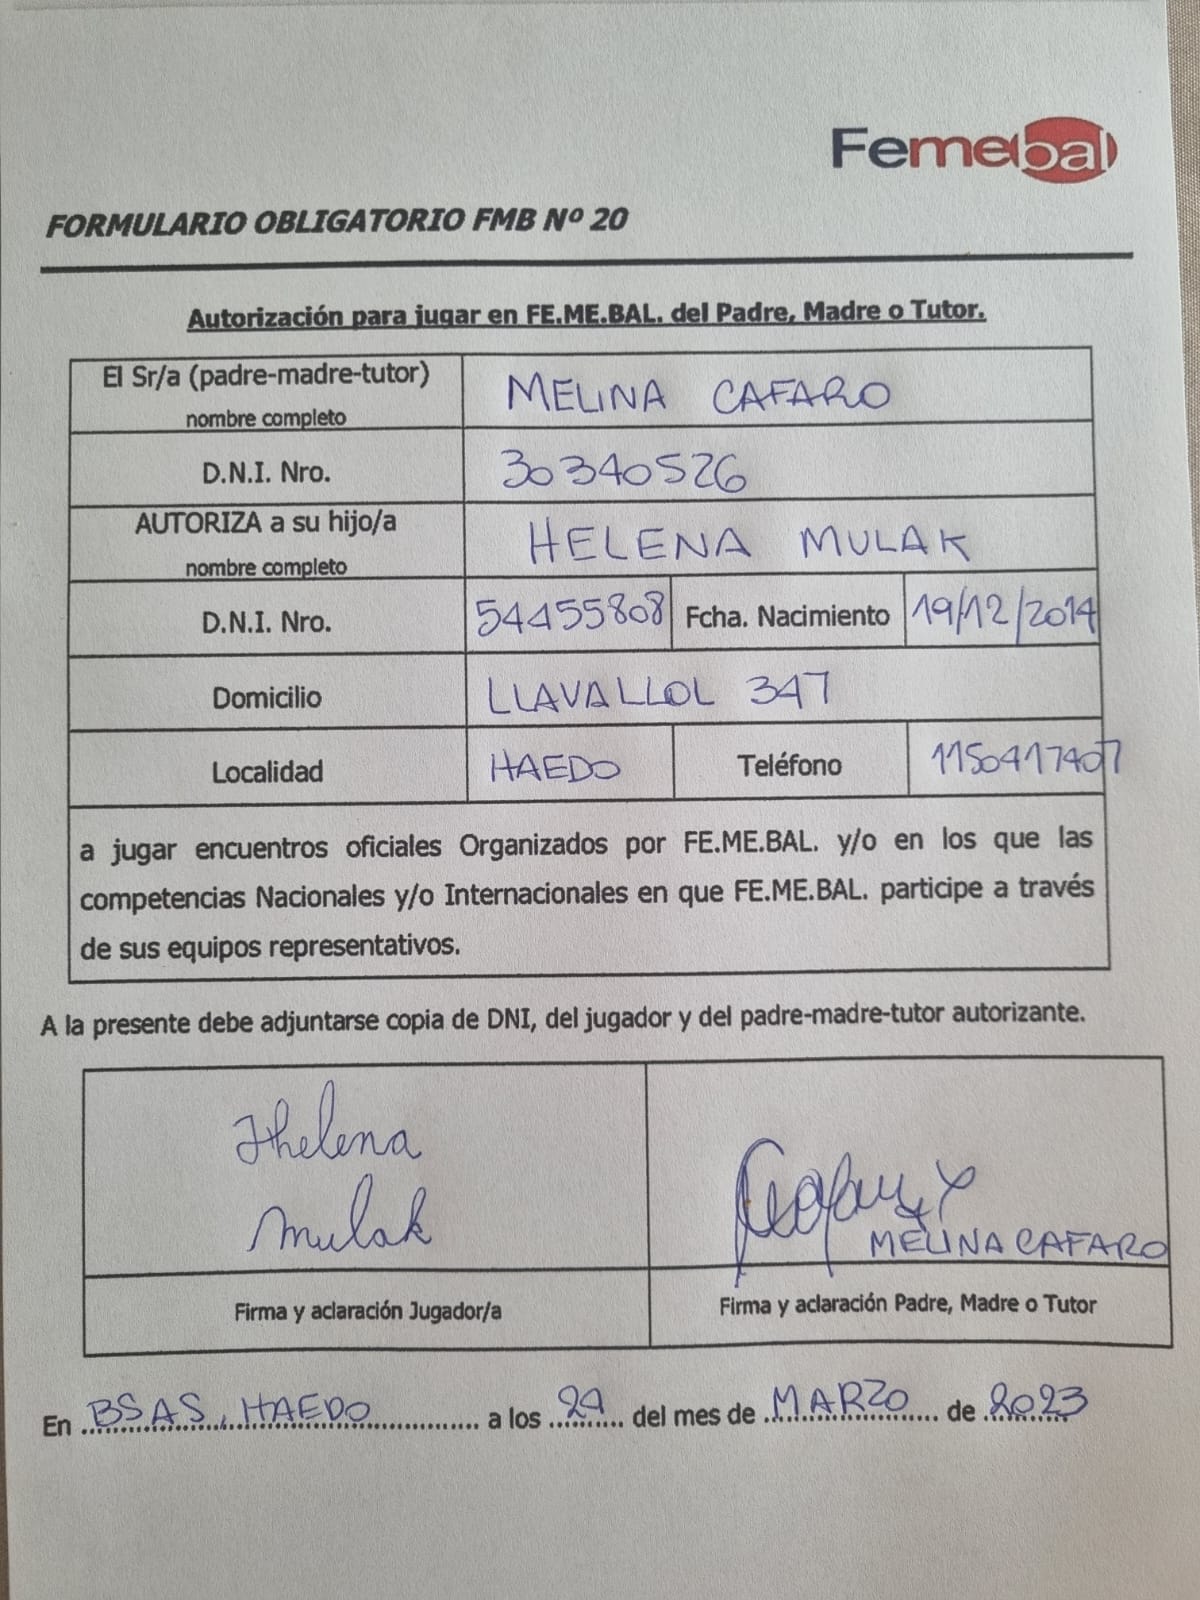 Femebal
FORMULARIO OBLIGATORIO FMB Nº 20
Autorización para jugar en FE.ME.BAL. del Padre, Madre o Tutor.
El Sr/a (padre-madre-tutor)
nombre completo
MELINA CAFARO
D.N.I. Nro.
30340526
AUTORIZA a su hijo/a
nombre completo
HELENA MULAK
D.N.I. Nro.
54455808
Fcha. Nacimiento
19/12/2014
Domicilio
LLAVALLOL 347
Localidad
HAEDO
Teléfono
1150417407
a jugar encuentros oficiales Organizados por FE.ME.BAL. y/o en los que las
competencias Nacionales y/o Internacionales en que FE.ME.BAL. participe a través
de sus equipos representativos.
A la presente debe adjuntarse copia de DNI, del jugador y del padre-madre-tutor autorizante.
Helena
Mulak
MELINA CAFARO
Firma y aclaración Jugador/a
Firma y aclaración Padre, Madre o Tutor
En BSAS, HAEDO a los 29 del mes de MARZO de 2023